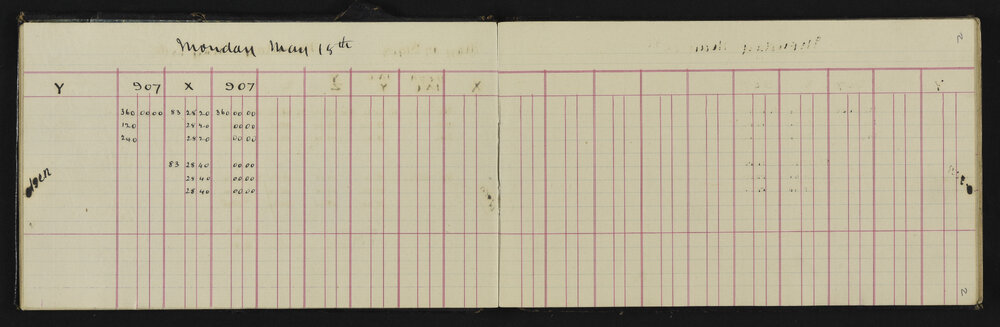 Monday May 18th
Y 907 X 907
360 00 00 83 28 20 360 00 00
120 28 20 00 00
240 28 20 00 00
83 28 40 00 00
28 40 00 00
28 40 00 00